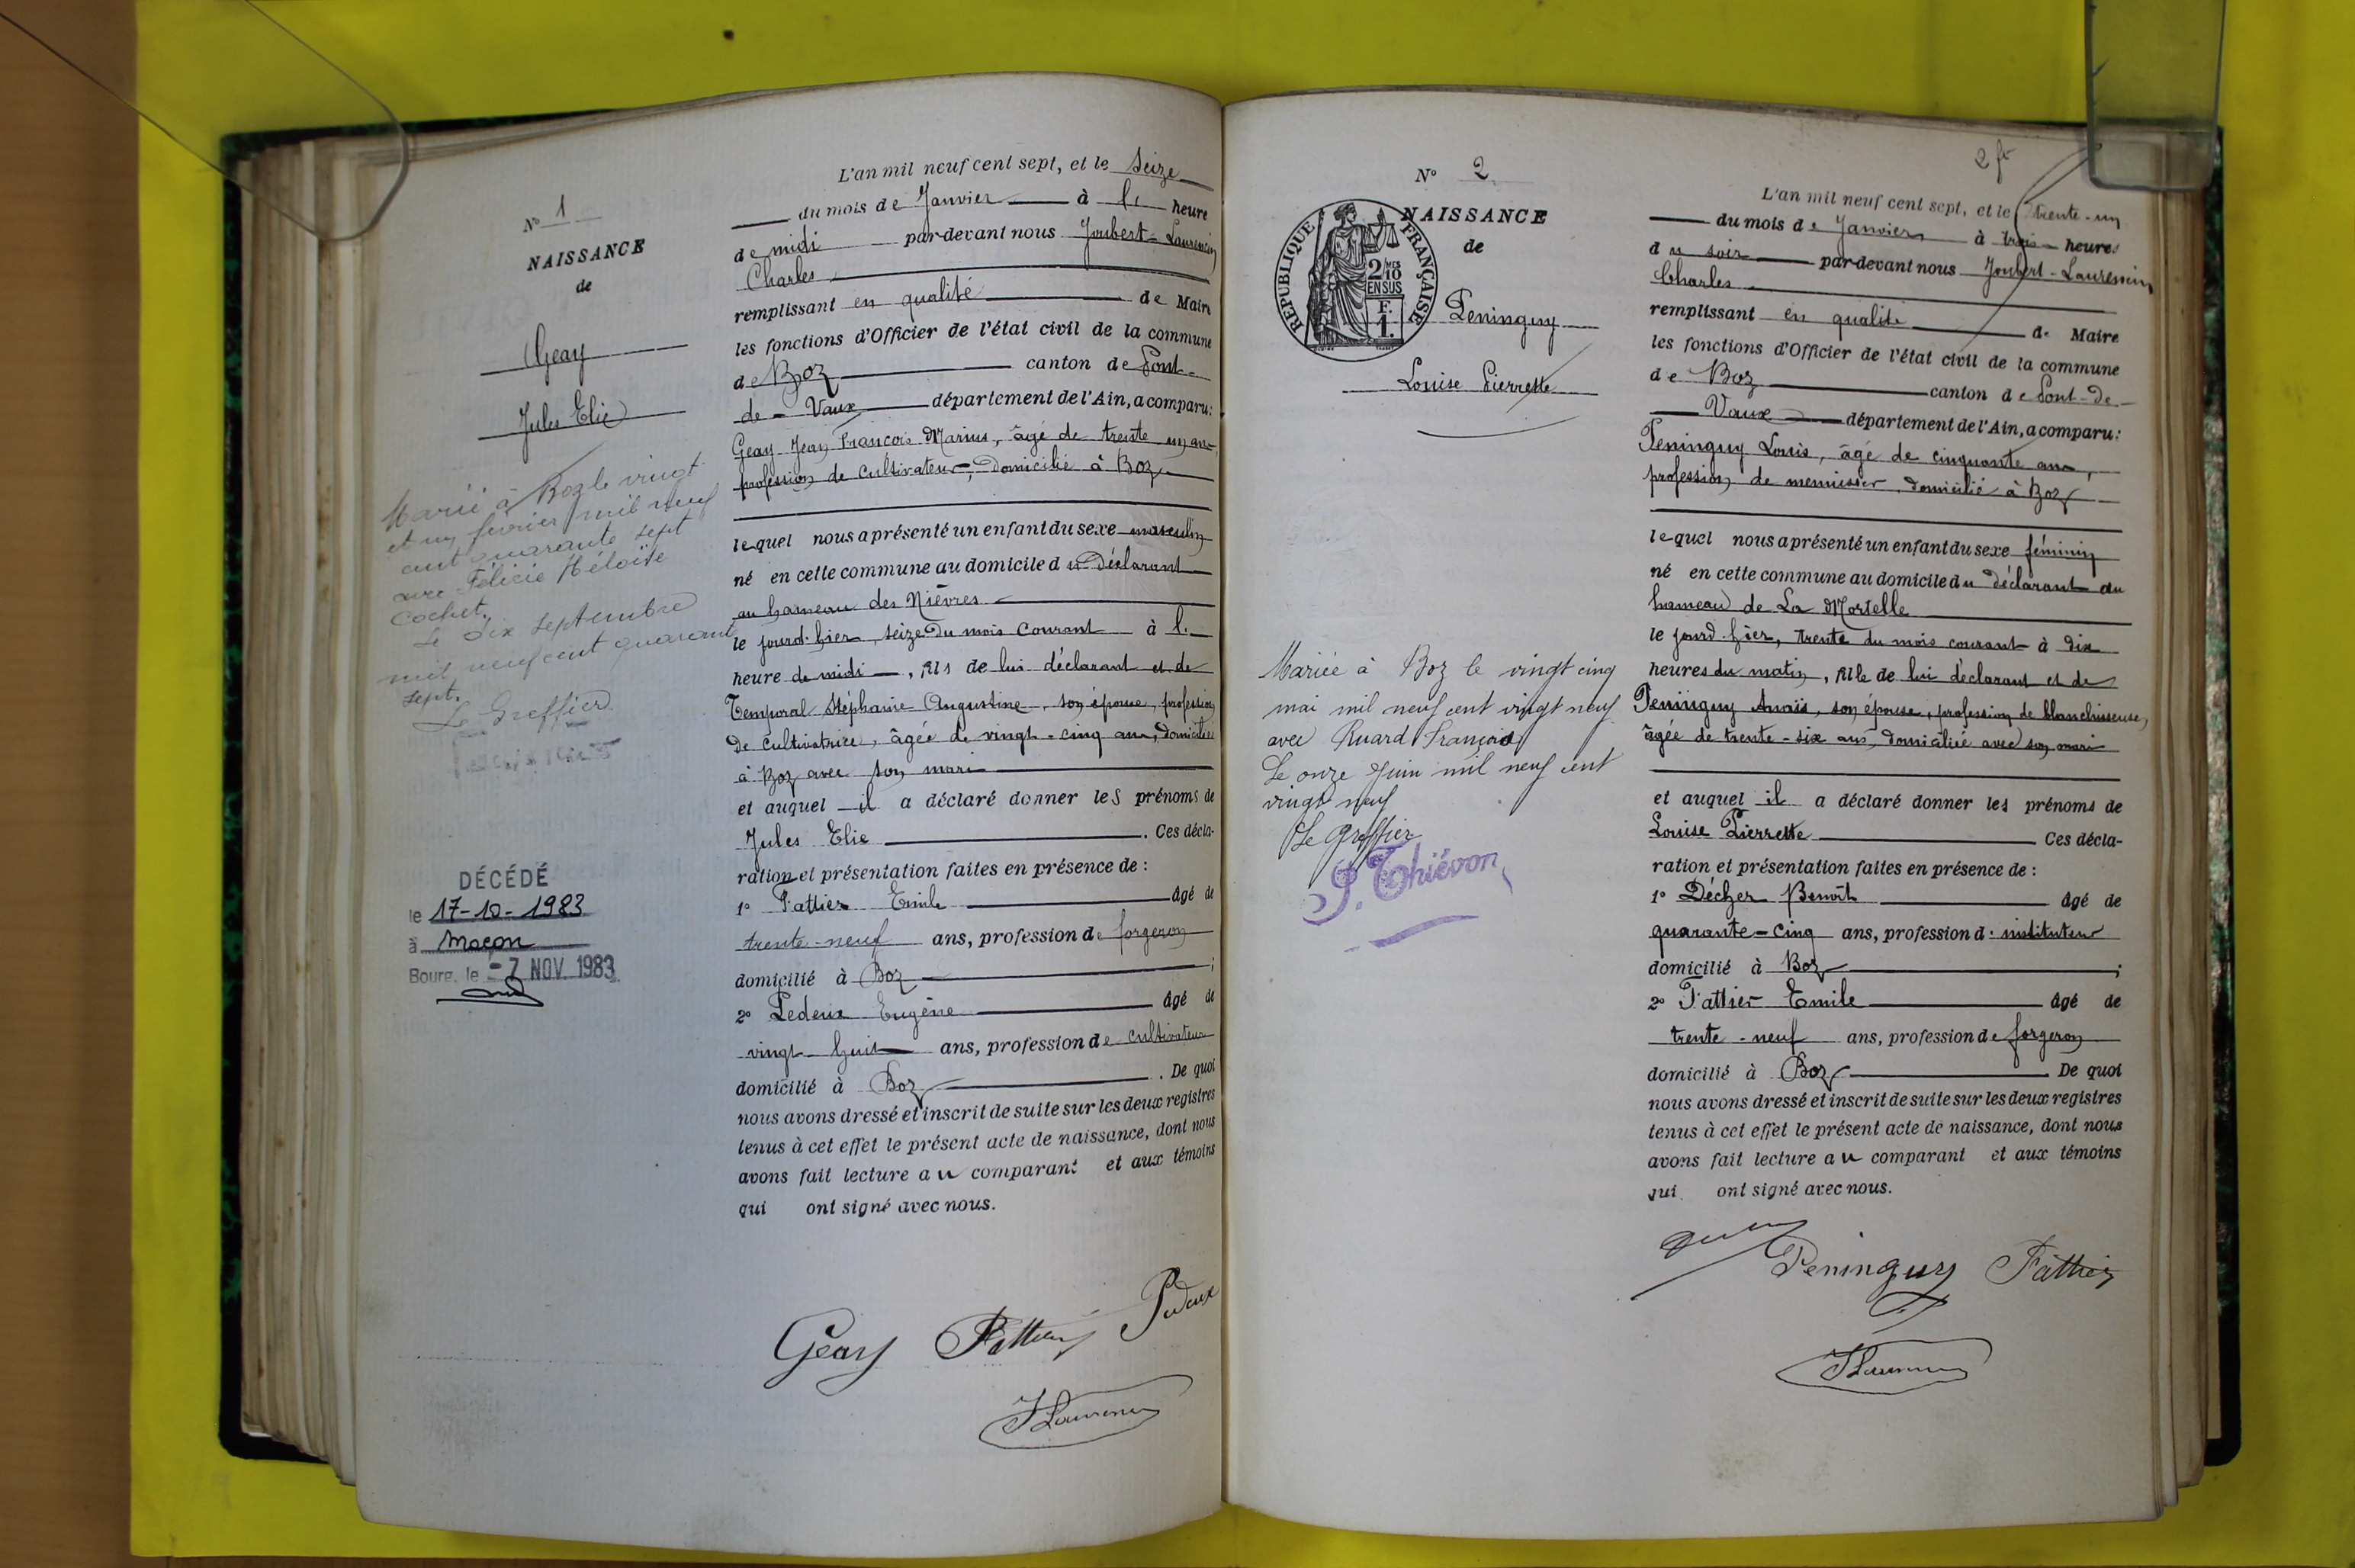 N° 1
NAISSANCE
de
Geay
Jules Elie
Marié à Boz le vingt
et un février mil neuf
cent quarante sept
avec Félicie Héloïse
Cochet.
Le dix septembre
mil neuf cent quarante
sept.
Le Greffier
DÉCÉDÉ
le 17-10-1983
à Macon
Bourg, le -7 NOV. 1983
L'an mil neuf cent sept, et le Seize
du mois de Janvier à heure
de midi par-devant nous Joubert-Laurencin
Charles
remplissant en qualité de Maire
les fonctions d'Officier de l'état civil de la commune
de Boz canton de Pont-
de-Vaux département de l'Ain, a comparu:
Geay Jean François Marius, âgé de trente un ans
profession de cultivateur, domicilié à Boz
lequel nous a présenté un enfant du sexe masculin
né en cette commune au domicile du déclarant
au hameau des Nièvres
le jourd'hier, seize du mois courant à
heure de midi, fils de lui déclarant et de
Temporal Stéphanie Augustine, son épouse, profession
de cultivatrice, âgée de vingt-cinq ans, domiciliée
à Boz avec son mari
et auquel il a déclaré donner les prénoms de
Jules Elie. Ces décla-
ration et présentation faites en présence de:
1° Fattier Emile âgé de
trente-neuf ans, profession de forgeron
domicilié à Boz;
2° Pedeux Eugène âgé de
vingt-huit ans, profession de cultivateur
domicilié à Boz. De quoi
nous avons dressé et inscrit de suite sur les deux registres
tenus à cet effet le présent acte de naissance, dont nous
avons fait lecture au comparant et aux témoins
qui ont signé avec nous.
Geay Fattier Pedeux
JLaurencin
N° 2
NAISSANCE
de
RÉPUBLIQUE FRANÇAISE
2/10 MES
EN SUS
F.
1.
Peninguy
Louise Pierrette
Mariée à Boz le vingt cinq
mai mil neuf cent vingt neuf
avec Ruard François
Le onze Juin mil neuf cent
vingt neuf
Le Greffier
P. Thiévon
2 ft
L'an mil neuf cent sept, et le trente-un
du mois de Janvier à trois heures
du soir par-devant nous Joubert-Laurencin
Charles
remplissant en qualité de Maire
les fonctions d'Officier de l'état civil de la commune
de Boz canton de Pont-de-
Vaux département de l'Ain, a comparu:
Peninguy Louis, âgé de cinquante ans,
profession de menuisier, domicilié à Boz
lequel nous a présenté un enfant du sexe féminin
né en cette commune au domicile du déclarant au
hameau de La Mortelle
le jourd'hier, trente du mois courant à dix
heures du matin, fille de lui déclarant et de
Peninguy Anaïs, son épouse, profession de blanchisseuse,
âgée de trente-six ans, domiciliée avec son mari
et auquel il a déclaré donner les prénoms de
Louise Pierrette Ces décla-
ration et présentation faites en présence de:
1° Décher Benoît âgé de
quarante-cinq ans, profession d'instituteur
domicilié à Boz;
2° Fattier Emile âgé de
trente-neuf ans, profession de forgeron
domicilié à Boz De quoi
nous avons dressé et inscrit de suite sur les deux registres
tenus à cet effet le présent acte de naissance, dont nous
avons fait lecture au comparant et aux témoins
qui ont signé avec nous.
Peninguy Fattier
JLaurencin